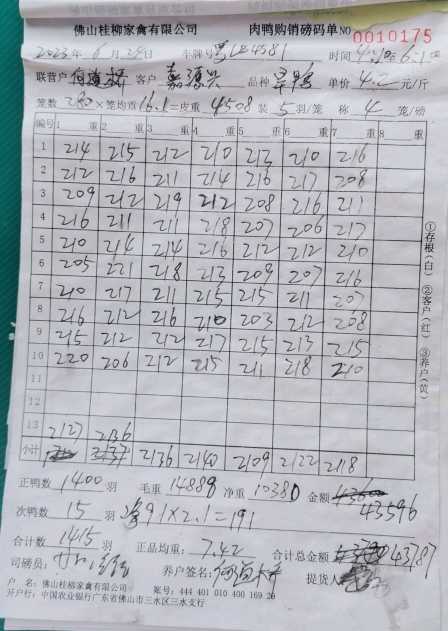 佛山桂柳家禽有限公司 肉鸭购销磅码单 NO 0010175
2023年6月29日 车牌号 4581 时间
联营户 客户 嘉源兴 品种 单价 4.2 元/斤
笼数 280 ×笼均重 16.1 =皮重 4508 装 5 羽/笼 称 4 笼/磅
编号 1 重 2 重 3 重 4 重 5 重 6 重 7 重 8 重
1 214 215 212 210 213 210 216
2 212 216 211 214 216 217 208
3 209 212 219 212 208 216 211
4 216 211 211 218 207 206 217
5 210 214 214 216 212 212 210
6 205 221 218 213 209 207 216
7 210 217 211 215 215 211 207
8 216 212 216 210 203 212 208
9 215 212 212 217 215 213 215
10 220 206 212 215 211 218 210
11
12
13 2127 2136
小计 2136 2140 2109 2122 2118
正鸭数 1400 羽 毛重 14888 净重 10380 金额 43596
次鸭数 15 羽 91×2.1=191
合计数 1415 羽 正品均重: 7.42 合计总金额 43787
司磅员: 养户签名: 提货人
户 名: 佛山桂柳家禽有限公司 账号: 444 401 010 400 169 28
开户行: 中国农业银行广东省佛山市三水区三水支行
①存根(白) ②客户(红) ③养户(黄)